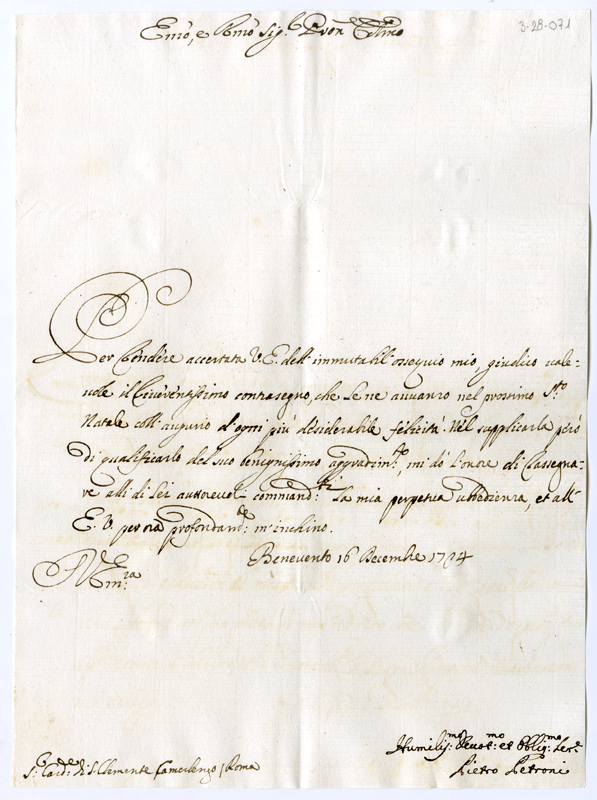 3-28-071
Emo, e Rmo Sig.r Pron Colmo
Per rendere accertata V. E. dell' immutabil' ossequio mio, giudico vale-
vole il riverentissimo contrasegno, che le ne avvanzo nel prossimo Sto:
Natale coll' augurio d' ogni più desiderabile felicità. Nel supplicarla però
di qualificarlo del suo benignissimo aggradimto:, mi do l' onore di rassegna-
re alli di Lei autorevoli commandti: la mia perpetua ubbedienza, et all'
E. V. per ora profondamte: m' inchino.
Benevento 16 Decembre 1724
V. Em:ra
Humiliss:mo Devot:mo et Oblig:mo Ser.e
Pietro Petroni
S.r Card:le di S. Clemente Camerlengo / Roma